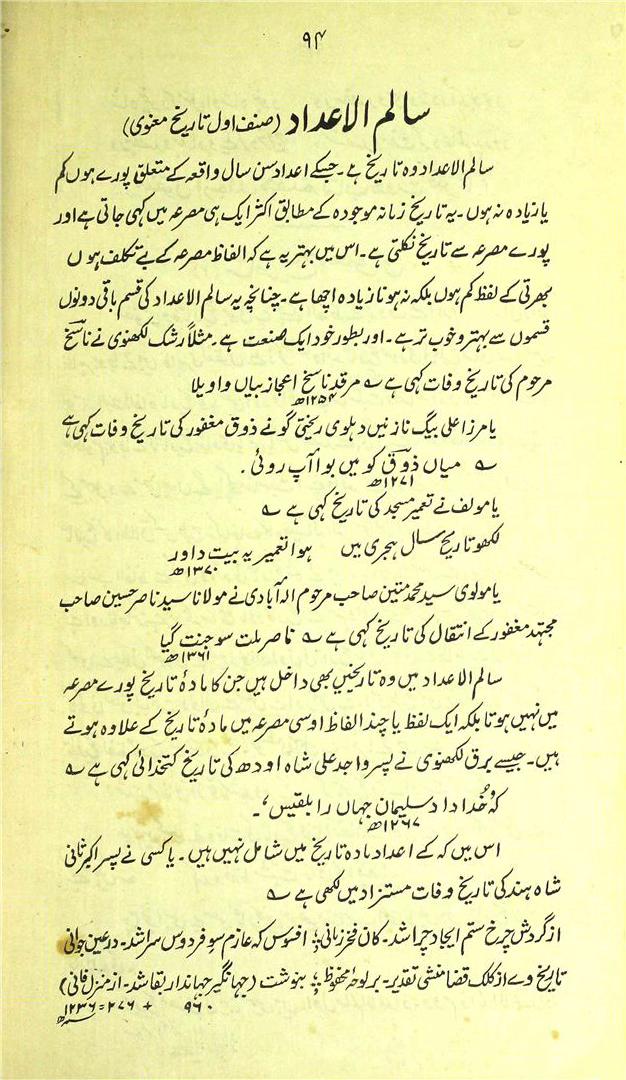 ۹۴
سالم الاعداد (صنف اول تاریخ معنوی)
سالم الاعداد وہ تاریخ ہے۔ جسکے اعداد سن سال واقعہ کے متعلق پورے ہوں کم
یا زیادہ نہ ہوں۔ یہ تاریخ زمانہ موجودہ کے مطابق اکثر ایک ہی مصرعہ میں کہی جاتی ہے اور
پورے مصرعہ سے تاریخ نکلتی ہے۔ اس میں بہتر یہ ہے کہ الفاظ مصرعہ کے بے تکلف ہوں
بھرتی کے لفظ کم ہوں بلکہ نہ ہونا زیادہ اچھا ہے۔ چنانچہ یہ سالم الاعداد کی قسم باقی دونوں
قسموں سے بہتر و خوب تر ہے۔ اور بطور خود ایک صنعت ہے۔ مثلاً رشک لکھنوی نے ناسخ
مرحوم کی تاریخ وفات کہی ہے ؎ مرقد ناسخ اعجاز بیاں واویلا
۱۲۵۴ھ
یا مرزا علی بیگ نازنیں دہلوی ریختی گو نے ذوق مغفور کی تاریخ وفات کہی ہے
؎ میاں ذوق کو میں بوا آپ روئی۔
۱۲۷۱ھ
یا مولف نے تعمیر مسجد کی تاریخ کہی ہے ؎
لکھو تاریخ سال ہجری میں ہوا تعمیر یہ بیت داور
۱۳۷۰ھ
یا مولوی سید محمد متین صاحب مرحوم الہ آبادی نے مولانا سید ناصر حسین صاحب
مجتہد مغفور کے انتقال کی تاریخ کہی ہے ؎ ناصر ملت سو جنت گیا
۱۳۶۱ھ
سالم الاعداد میں وہ تاریخیں بھی داخل ہیں جن کا مادۂ تاریخ پورے مصرعہ
میں نہیں ہوتا بلکہ ایک لفظ یا چند الفاظ اوسی مصرعہ میں مادۂ تاریخ کے علاوہ ہوتے
ہیں۔ جیسے برق لکھنوی نے پسر واجد علی شاہ اودھ کی تاریخ کتخدائی کہی ہے ؎
کہ ’خُدا داد سلیمان جہاں را بلقیس‘۔
۱۲۶۷ھ
اس میں کہ کے اعداد مادہ تاریخ میں شامل نہیں ہیں۔ یا کسی نے پسر اکبر ثانی
شاہ ہند کی تاریخ وفات مستزاد میں لکھی ہے ؎
از گردش چرخ ستم ایجاد چرا شد۔ کان فخر زمانی؛ افسوس کہ عازم سو فردوس سرا شد۔ در عین جوانی
تاریخ وے از کلک قضا منشی تقدیر۔ بر لوح محفوظ؛ بنوشت (جہانگیر جہاندار بقا شد۔ از منزل فانی)
۹۶۰ + ۲۷۶ = ۱۲۳۶ھ